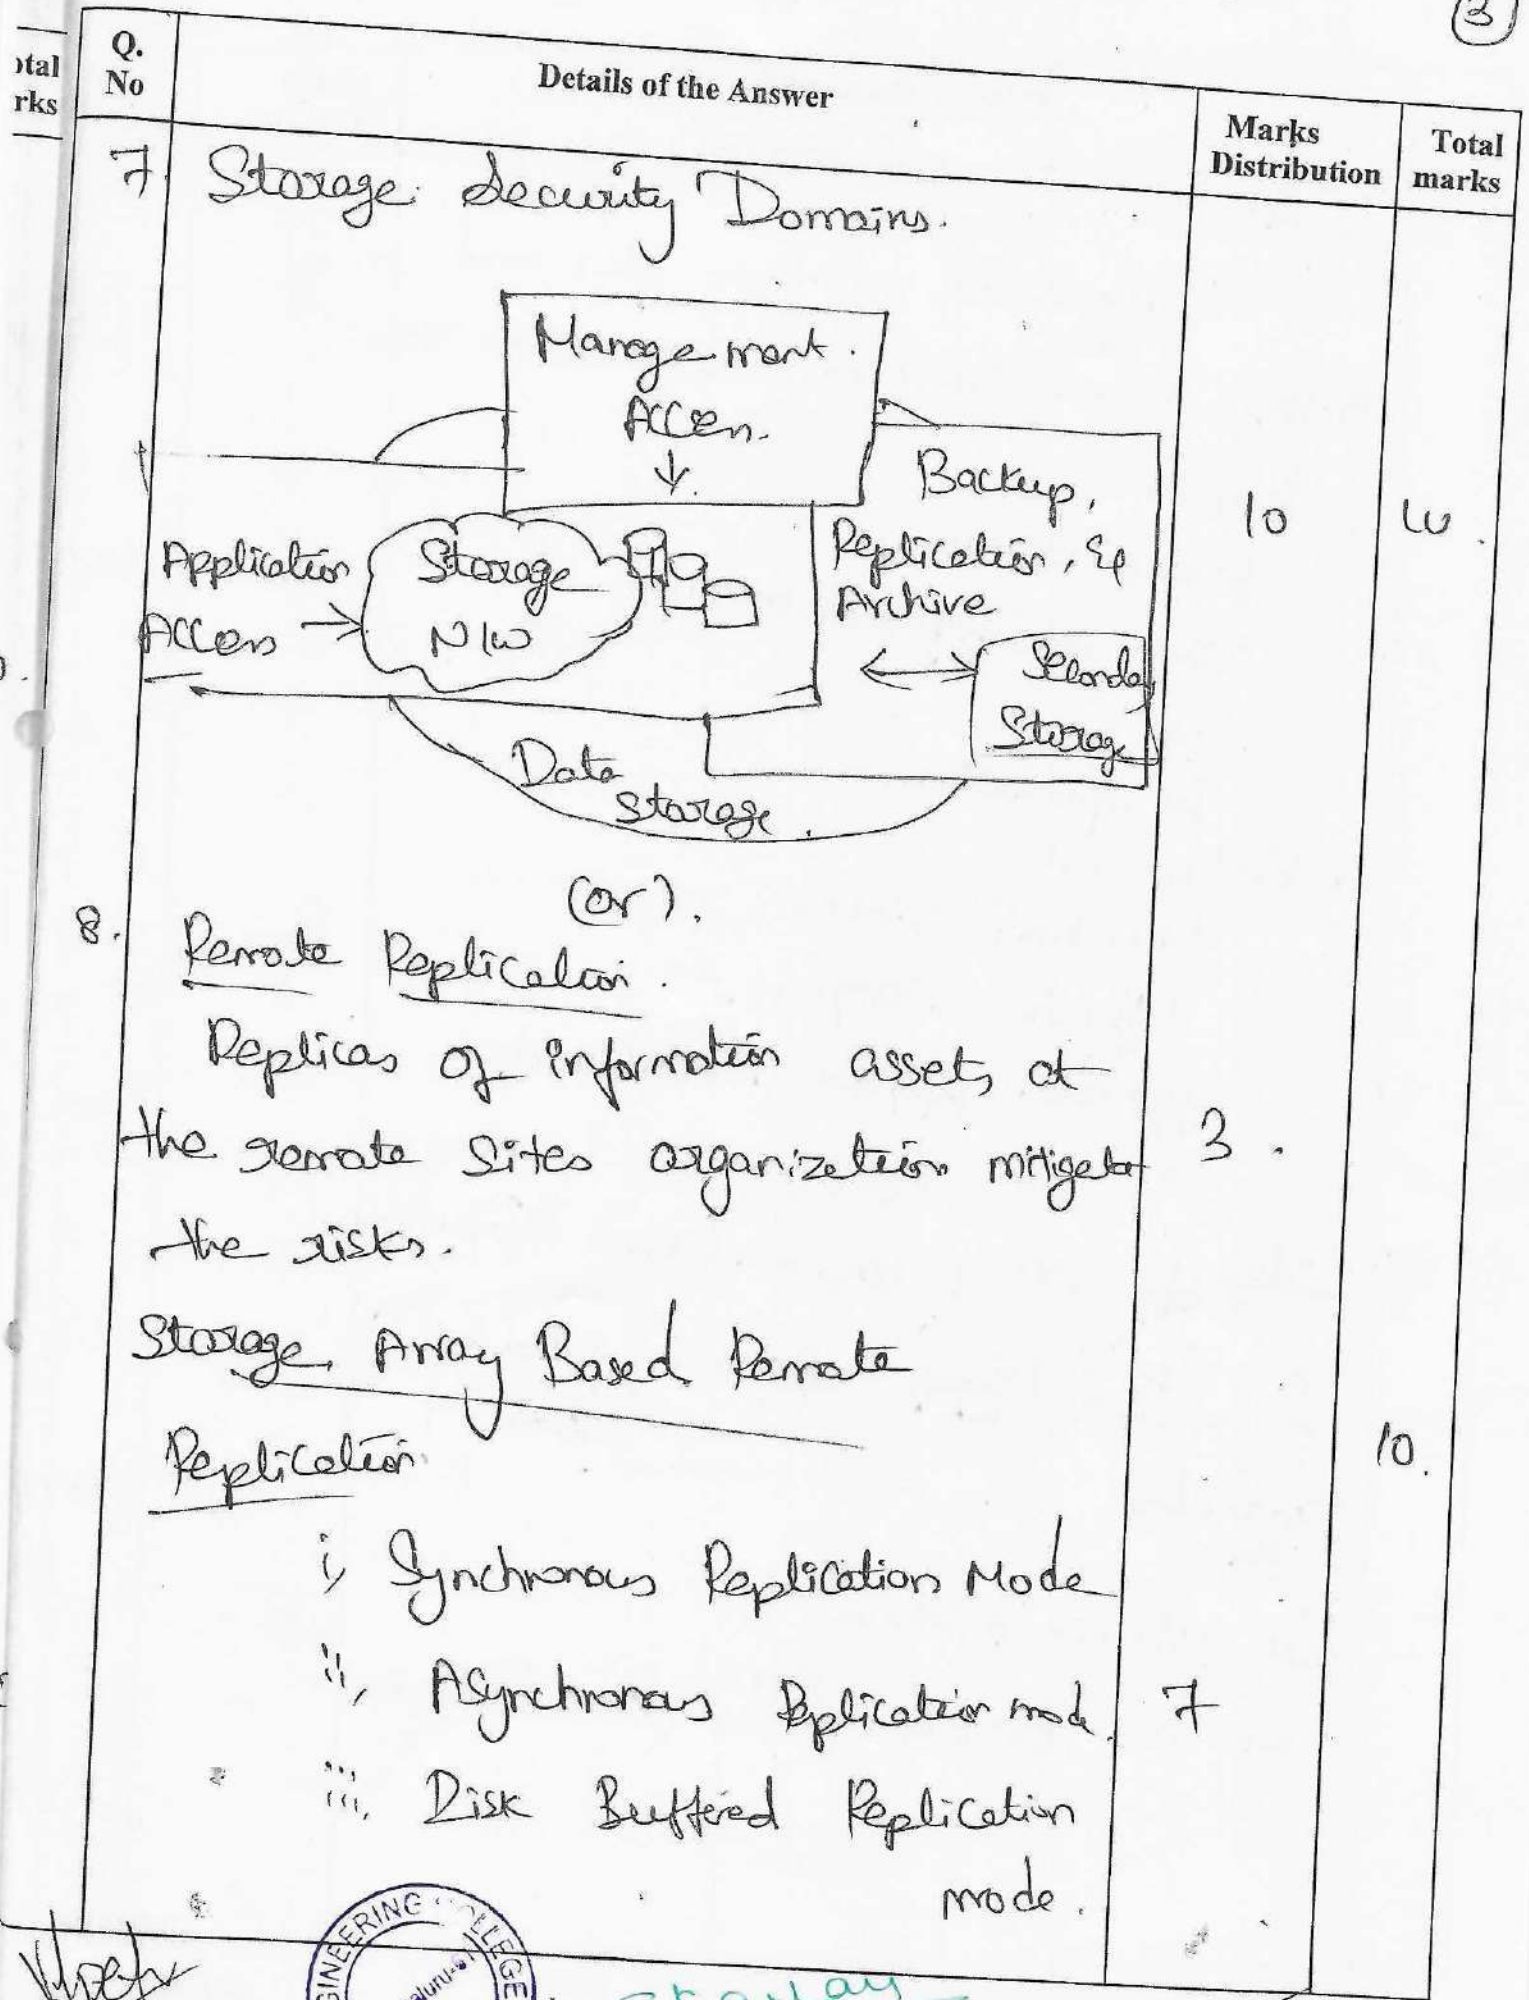 3
otal
rks
Q.
No
Details of the Answer
Marks
Distribution
Total
marks
7. Storage Security Domains.
Management
Access.
Backup,
Replication, &
Archive
Application
Access
Storage
N/W
Seconday
Storage
10
10.
Data
Storage.
(or).
8.
Remote Replication.
Replicas of information assets at
the remate Sites organization mitigate
the risks.
3.
Storage Array Based Remote
Replication
10.
i, Synchronous Replication Mode
ii, Asynchronous Replication mode.
7
iii, Disk Buffered Replication
mode.
GINEERING COLLEGE